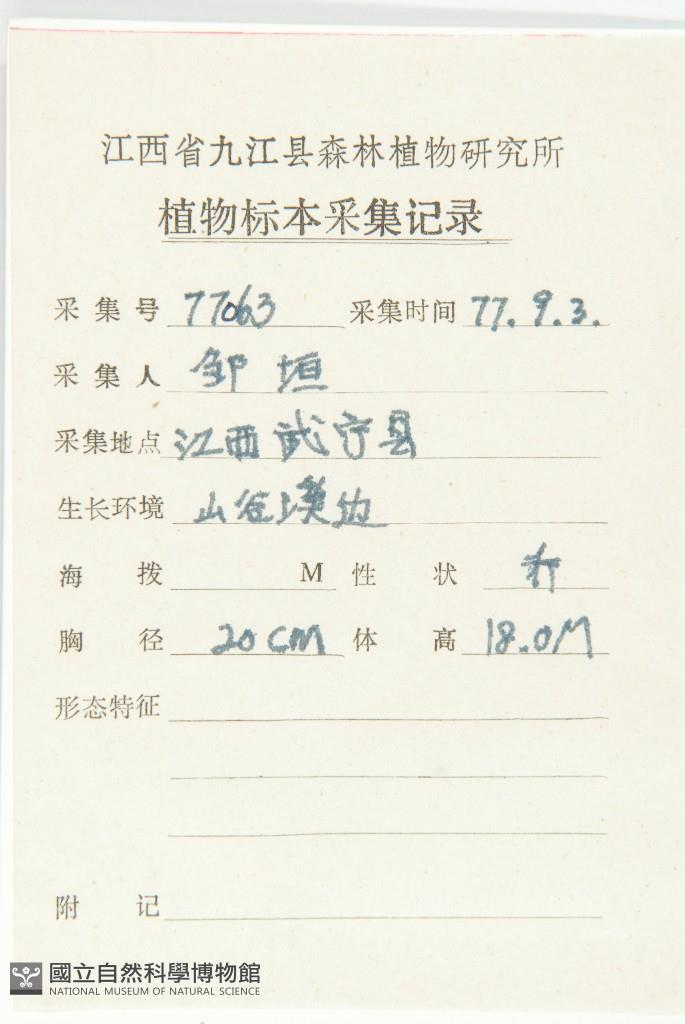 江西省九江县森林植物研究所
植物标本采集记录
采集号 77063 采集时间 77.9.3.
采集人 邹垣
采集地点 江西武宁县
生长环境 山谷溪边
海拨 M 性状 乔
胸径 20CM 体高 18.0M
形态特征
附记
國立自然科學博物館
NATIONAL MUSEUM OF NATURAL SCIENCE